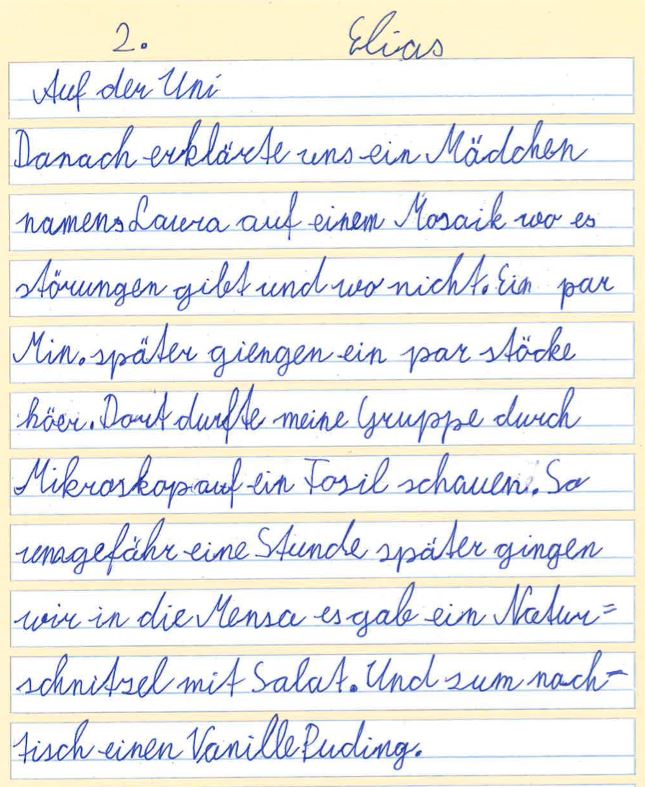 2. Elias
Auf der Uni
Danach erklärte uns ein Mädchen
namens Laura auf einem Mosaik wo es
störungen gibt und wo nicht. Ein par
Min. später giengen ein par stöcke
höer. Dort durfte meine Gruppe durch
Mikroskop auf ein Fosil schauen. So
unsgefähr eine Stunde später gingen
wir in die Mensa es gab ein Natur=
schnitzel mit Salat. Und zum nach-
tisch einen Vanille Puding.